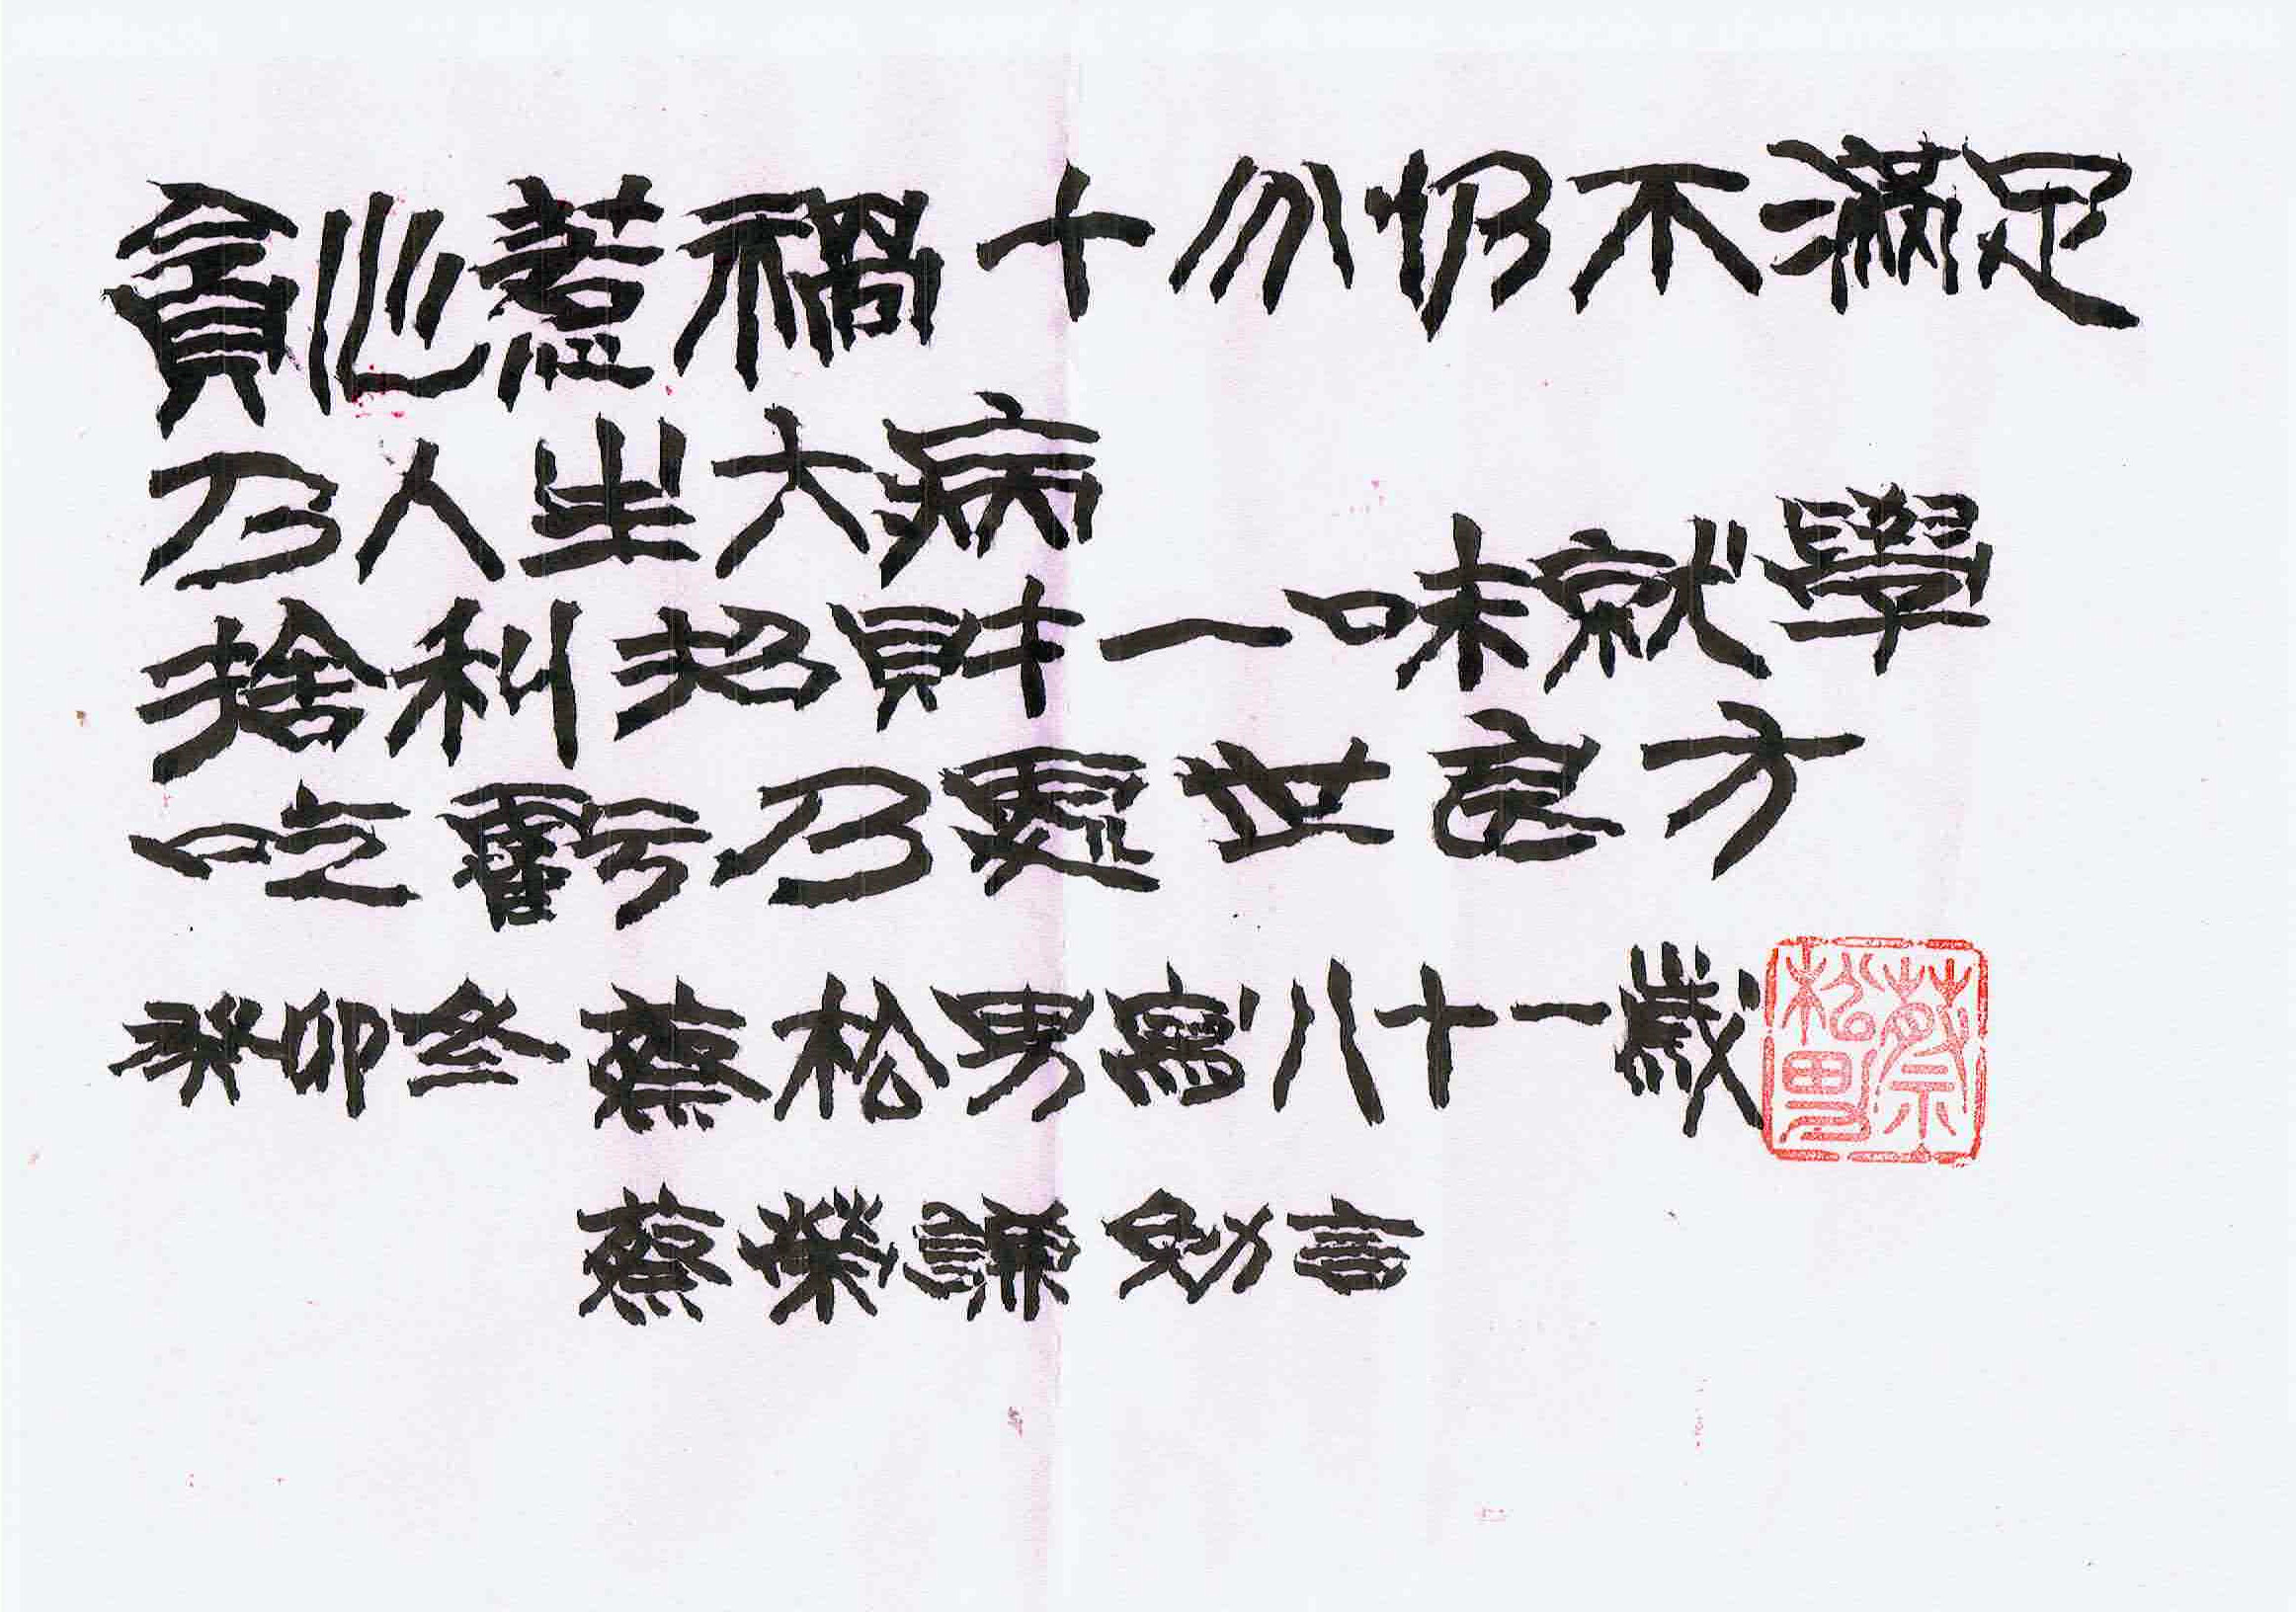 貪心惹禍十分仍不滿足
乃人生大病
捨利招財一味就學
吃虧乃處世良方
癸卯冬 蔡松男寫八十一歲
蔡松男
蔡榮謙勉言